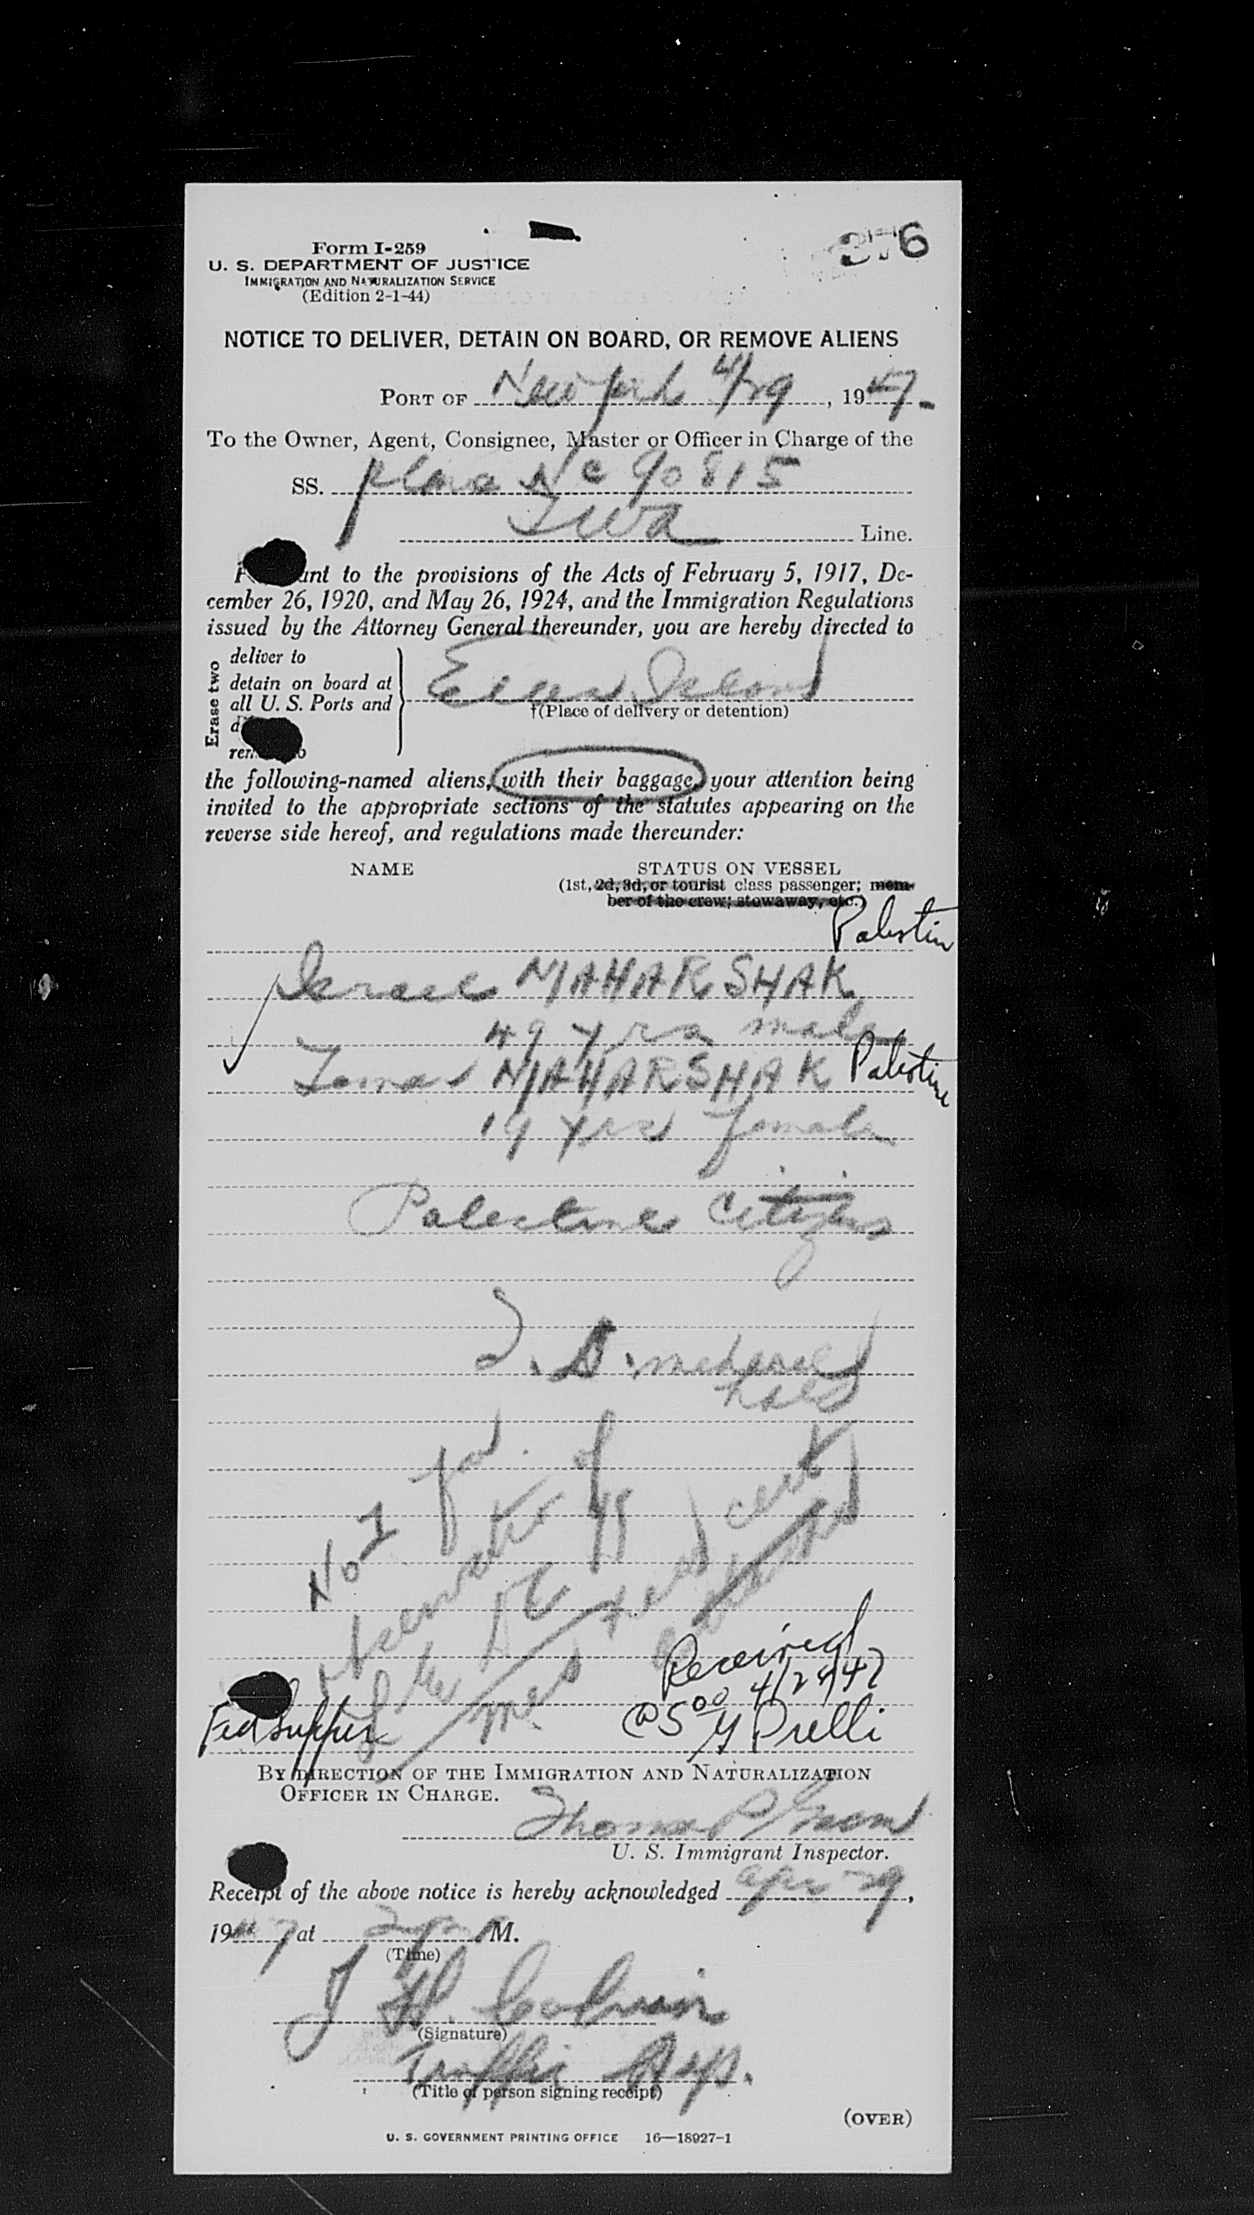 376
Form I-259
U. S. DEPARTMENT OF JUSTICE
IMMIGRATION AND NATURALIZATION SERVICE
(Edition 2-1-44)
NOTICE TO DELIVER, DETAIN ON BOARD, OR REMOVE ALIENS
PORT OF New York 4/29, 1947.
To the Owner, Agent, Consignee, Master or Officer in Charge of the
SS. plane Nc 90815
Twa Line.
ant to the provisions of the Acts of February 5, 1917, De-
cember 26, 1920, and May 26, 1924, and the Immigration Regulations
issued by the Attorney General thereunder, you are hereby directed to
Erase two
deliver to
detain on board at
all U. S. Ports and
Ellis Island
†(Place of delivery or detention)
the following-named aliens, with their baggage, your attention being
invited to the appropriate sections of the statutes appearing on the
reverse side hereof, and regulations made thereunder:
NAME STATUS ON VESSEL
(1st, 2d, 3d, or tourist class passenger; mem-
ber of the crew; stowaway, etc.)
Palestin
Israel MAHARSHAK
49 yrs male
MAHARSHAK Palestine
19 yrs female
Palestine Citizens
hold
Not for
of
cert
Received
4/29/47
@ 500
Fed Supper
BY DIRECTION OF THE IMMIGRATION AND NATURALIZATION
OFFICER IN CHARGE.
Thomas P
U. S. Immigrant Inspector.
Receipt of the above notice is hereby acknowledged apr 29,
1947 at M.
(Time)
J
(Signature)
Traffic Rep.
(Title of person signing receipt)
(OVER)
U. S. GOVERNMENT PRINTING OFFICE 16—18927-1